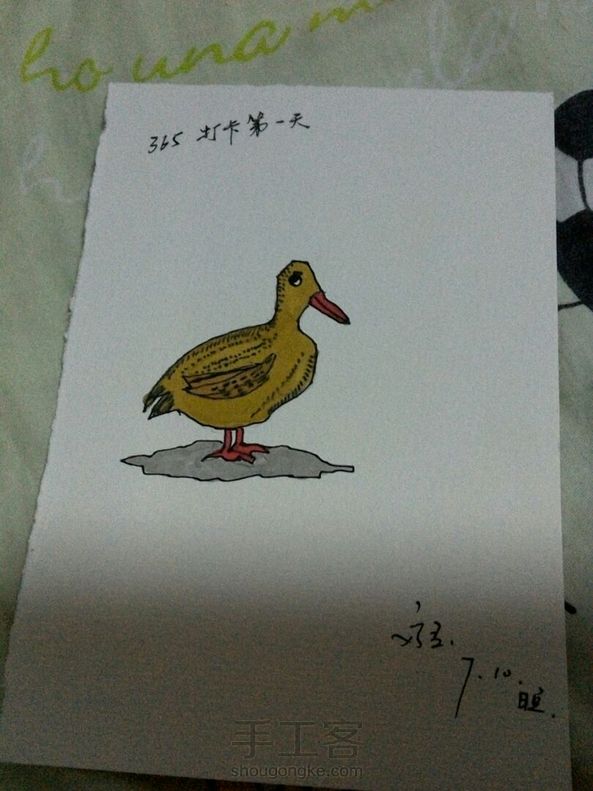 ho una m
365 打卡第一天
7.10.
手工客
shougongke.com